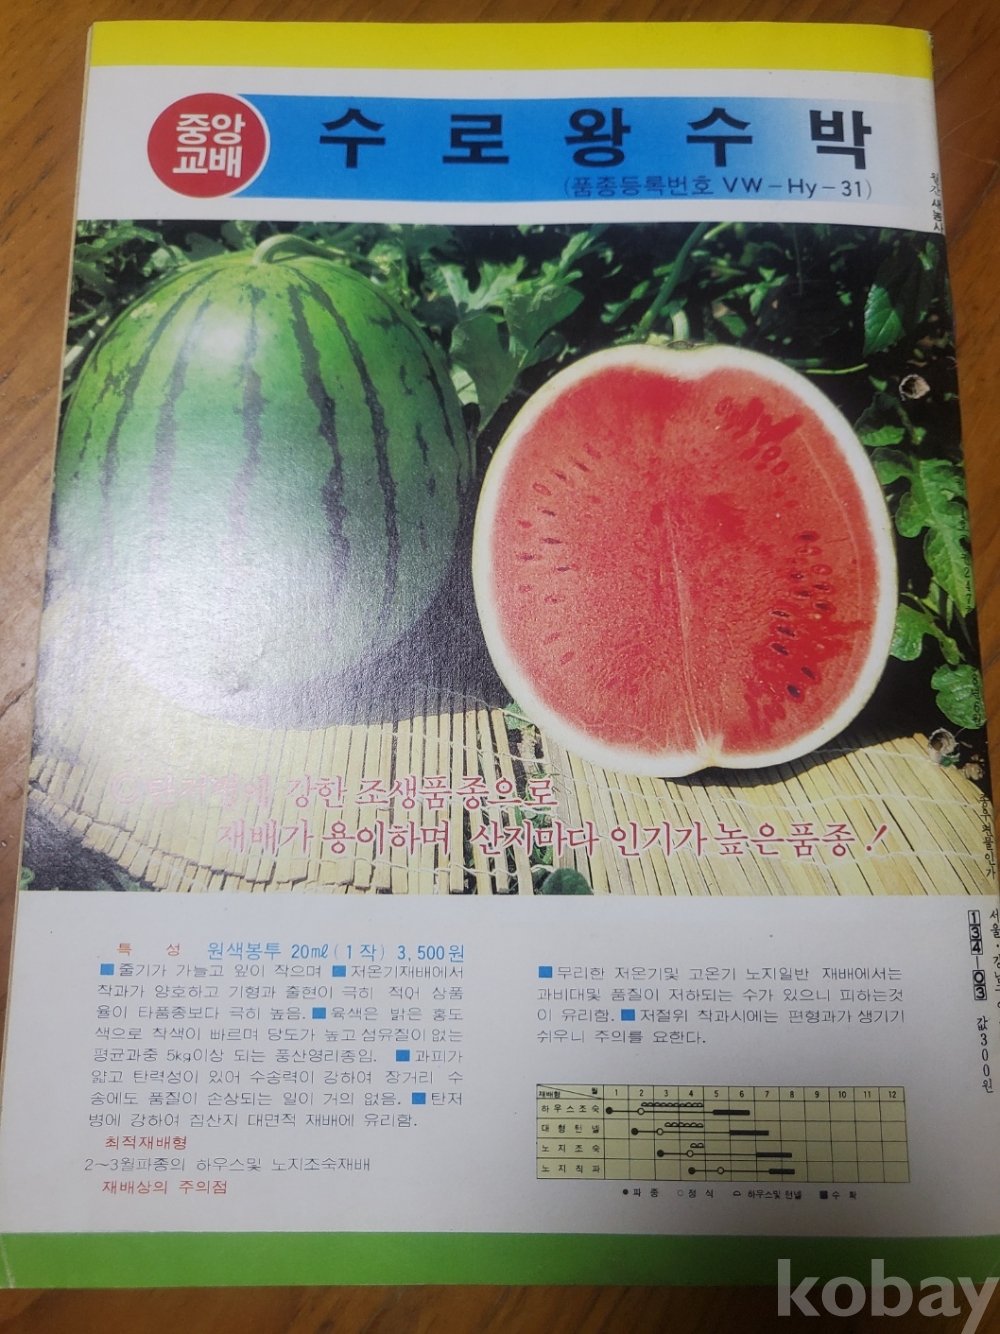 중앙
교배
수로왕수박
(품종등록번호 VW-Hy-31)
강한 조생품종으로
재배가 용이하며 산지마다 인기가 높은품종!
특 성 원색봉투 20㎖(1작) 3,500원
■줄기가 가늘고 잎이 작으며 ■저온기재배에서
착과가 양호하고 기형과 출현이 극히 적어 상품
율이 타품종보다 극히 높음. ■육색은 밝은 홍도
색으로 착색이 빠르며 당도가 높고 섬유질이 없는
평균과중 5kg이상 되는 풍산영리종임. ■과피가
얇고 탄력성이 있어 수송력이 강하여 장거리 수
송에도 품질이 손상되는 일이 거의 없음. ■탄저
병에 강하여 집산지 대면적 재배에 유리함.
최적재배형
2~3월파종의 하우스및 노지조숙재배
재배상의 주의점
■무리한 저온기및 고온기 노지일반 재배에서는
과비대및 품질이 저하되는 수가 있으니 피하는것
이 유리함. ■저절위 착과시에는 편형과가 생기기
쉬우니 주의를 요한다.
재배형 월 1 2 3 4 5 6 7 8 9 10 11 12
하우스조숙
대형턴넬
노지조숙
노지직파
●파종 ○정식 하우스및턴넬 ■수확
월간 새농사
134-03
값300원
kobay